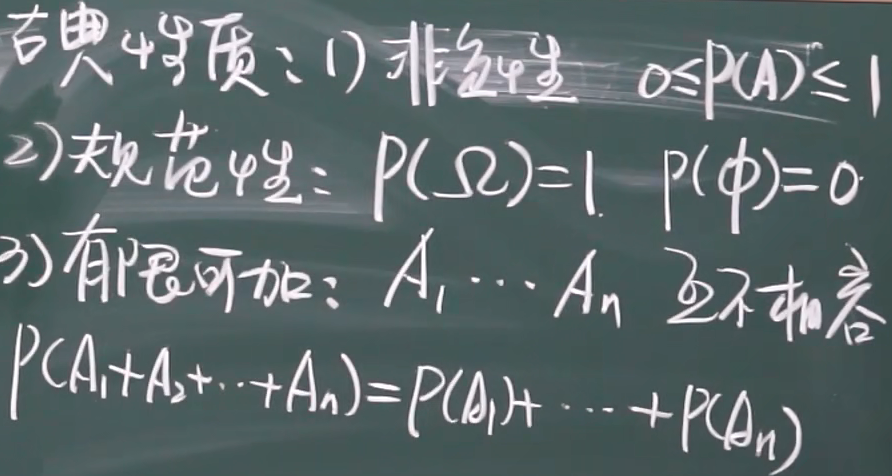 古典性质：1) 非负性 0≤P(A)≤1
2) 规范性：P(Ω)=1. P(φ)=0.
3) 有限可加：A₁⋯Aₙ 互不相容
P(A₁+A₂+⋯+Aₙ)=P(A₁)+⋯+P(Aₙ)